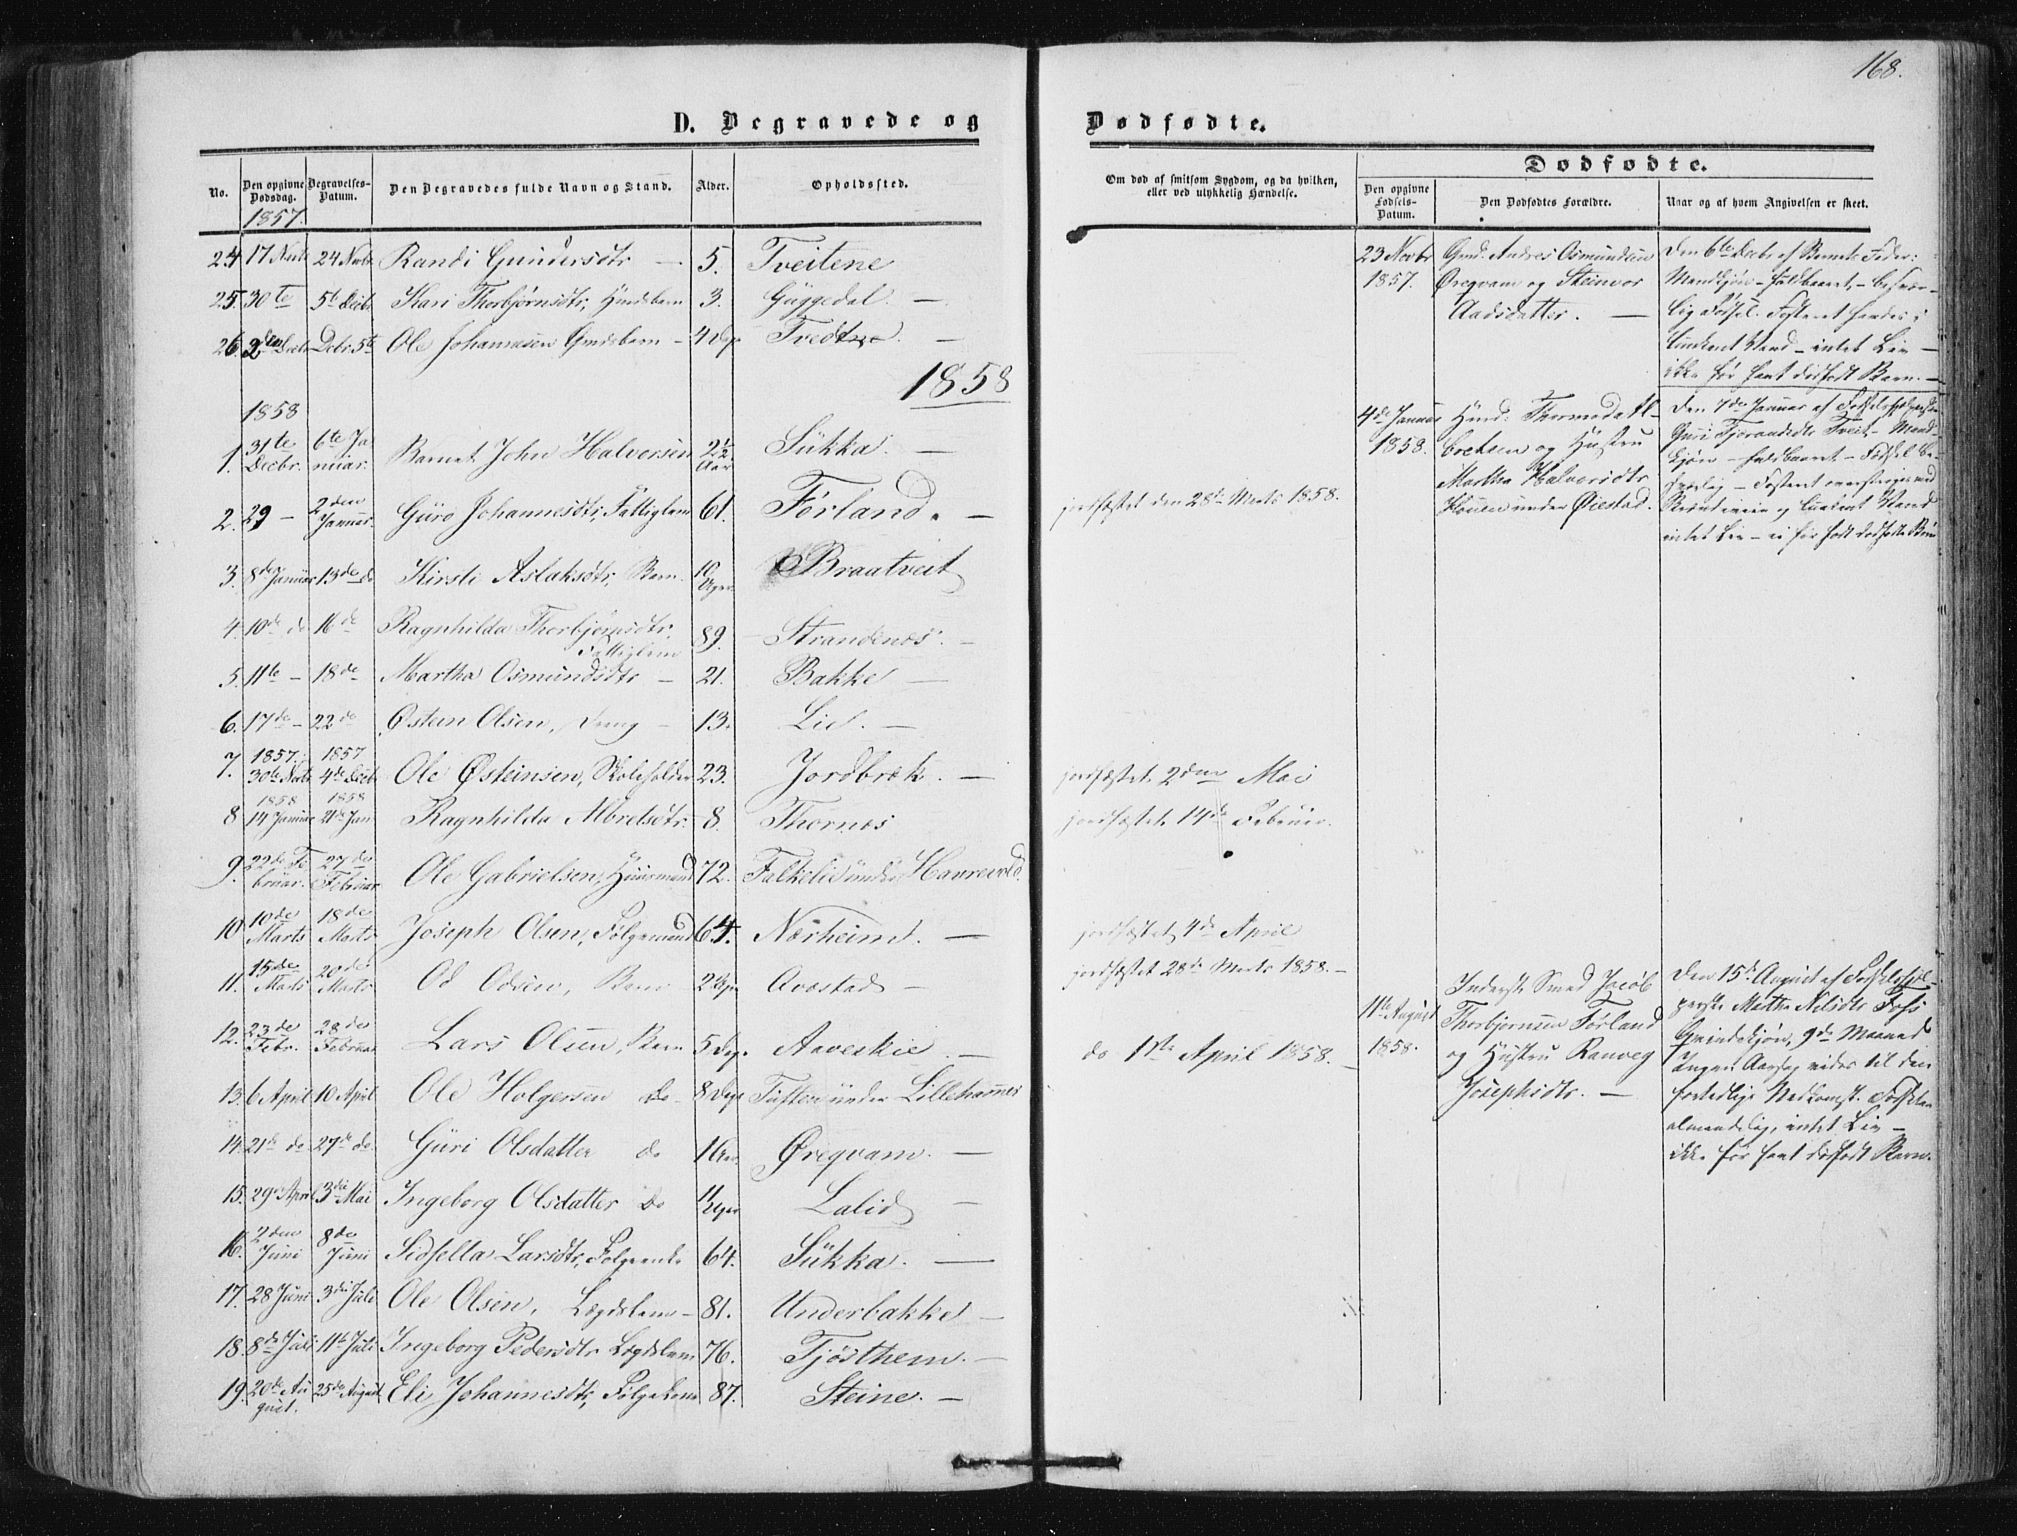 168.
D. Begravede og Dødfødte.
No. | Den opgivne Dødsdag. | Begravelses-Datum. | Den Begravedes fulde Navn og Stand. | Alder. | Opholdssted.
1857.
24 | 17 Novb | 24 Novb | Randi Gundersdtr — | 5. | Tveitene
25. | 30te | 5te Decbr | Kari Thorbjørnsdtr, Gmdsbarn | 3. | Guggedal. —
26. | 2den Decbr | Decbr. 5te | Ole Johannesen Gmdsbarn — | 4 Dage | Tvedtne. —
1858
1858
1. | 31te Decbr. | 6te Januar. | Barnet John Halvorsen | 2½ Aar | Sükka. —
2. | 29 — | 2den Januar. | Güro Johannesdtr, Fattiglem | 61. | Førland. —
3. | 8de Januar | 13de do | Kirsti Aslaksdtr, Barn. | 10 Uger | Braatveit
4 | 10de do | 16de | Ragnhilda Thorbjørnsdtr, Fattiglem | 89. | Strandenæs. —
5. | 11te — | 18de | Martha Osmundsdtr — | 21. | Bakke —
6. | 17de — | 22de | Østein Olsen, Dreng — | 13. | Lid. —
7. | 1857. 30te Novb | 1857 4de Decb | Ole Østeinsen, Skoleholder | 23. | Jordbræk. —
8 | 1858 14 Januar | 1858 21de Jan | Ragnhilda Albretsdtr. | 8. | Thornæs
9. | 22de Februar. | 27de Februar | Ole Gabrielsen, Huusmand | 72. | Falkelid under Haurevold.
10 | 10de Marts | 18de Marts | Joseph Olsen, Følgemand | 64. | Nærheim. —
11. | 15de Marts | 20de Marts | Od Odsen, Barn | 2 Uger | Avøstad —
12. | 23de Febr. | 28de Februar | Lars Olsen, Barn | 5 Dage | Aaveskie. —
13. | 6 April | 10 April | Ole Holgersen do | 8 Dage | Tüften under Lillehamer
14. | 21de do | 27de do | Güri Olsdatter do | 1 Aar. | Øregvam. —
15. | 29de April | 3die Mai | Ingeborg Olsdatter do | 11 Uger | Lalid —
16. | 2den Juni | 8de Juni | Sidsella Larsdtr, Følgeenke | 64. | Sükka. —
17. | 28 Juni | 3die Juli | Ole Olsen, Lægdslem — | 81. | Underbakke —
18. | 8de Juli | 11te Juli | Ingeborg Pedersdtr Lægdslem | 76. | Tjøsthem. —
19. | 20de August. | 25de August | Eli Johannesdtr, Følgekone | 87. | Steine. —
Om død af smitsom Sygdom, og da hvilken, eller ved ulykkelig Hændelse.
jordfæstet den 28de Marts 1858.
jordfæstet 2den Mai
jordfæstet 14de Februar.
jordfæstet 4de April
jordfæstet 28de Marts 1858. —
do 11te April 1858.
Dødfødte.
Den opgivne Fødsels-Datum. | Den Dødfødtes Forældre. | Naar og af hvem Angivelsen er skeet.
23 Novbr 1857.
Gmd. Andres Osmundsen
Øregvam og Steinvor
Aadsdatter. —
Den 6te Decbr af Barnets Fader:
Mandkjøn — fuldbaaret — besvær-
lig Fødsel. Fosteret fandtes i
Stand — intet Liv —
ikke før havt dødfødt Barn. —
4de Januar 1858.
Husmd. Thormod Al-
bretsen og Hustru
Martha Halvorsdtr
under Øiestad.
Den 7de Januar af Fødselshjelpersken
Guri Tjerandsdtr Tveit — Mand-
kjøn — fuldbaaret — Fødsel be-
sværlig — Fosteret
Stand
intet Liv — ei før født dødfødte Børn
11te August 1858.
Inderste Smed Jacob
Thorbjørnsen Førland
og Hustru Ranveg
Josephsdtr. —
Den 15de August af Fødselshjel-
perske Martha Nilsdtr Foss
Qvindekjøn, 9de Maaned
Ingen Aarsag vides til den
fortidlige Nedkomst. Fødselen
almindelig, intet Liv —
ikke før havt dødfødt Barn.